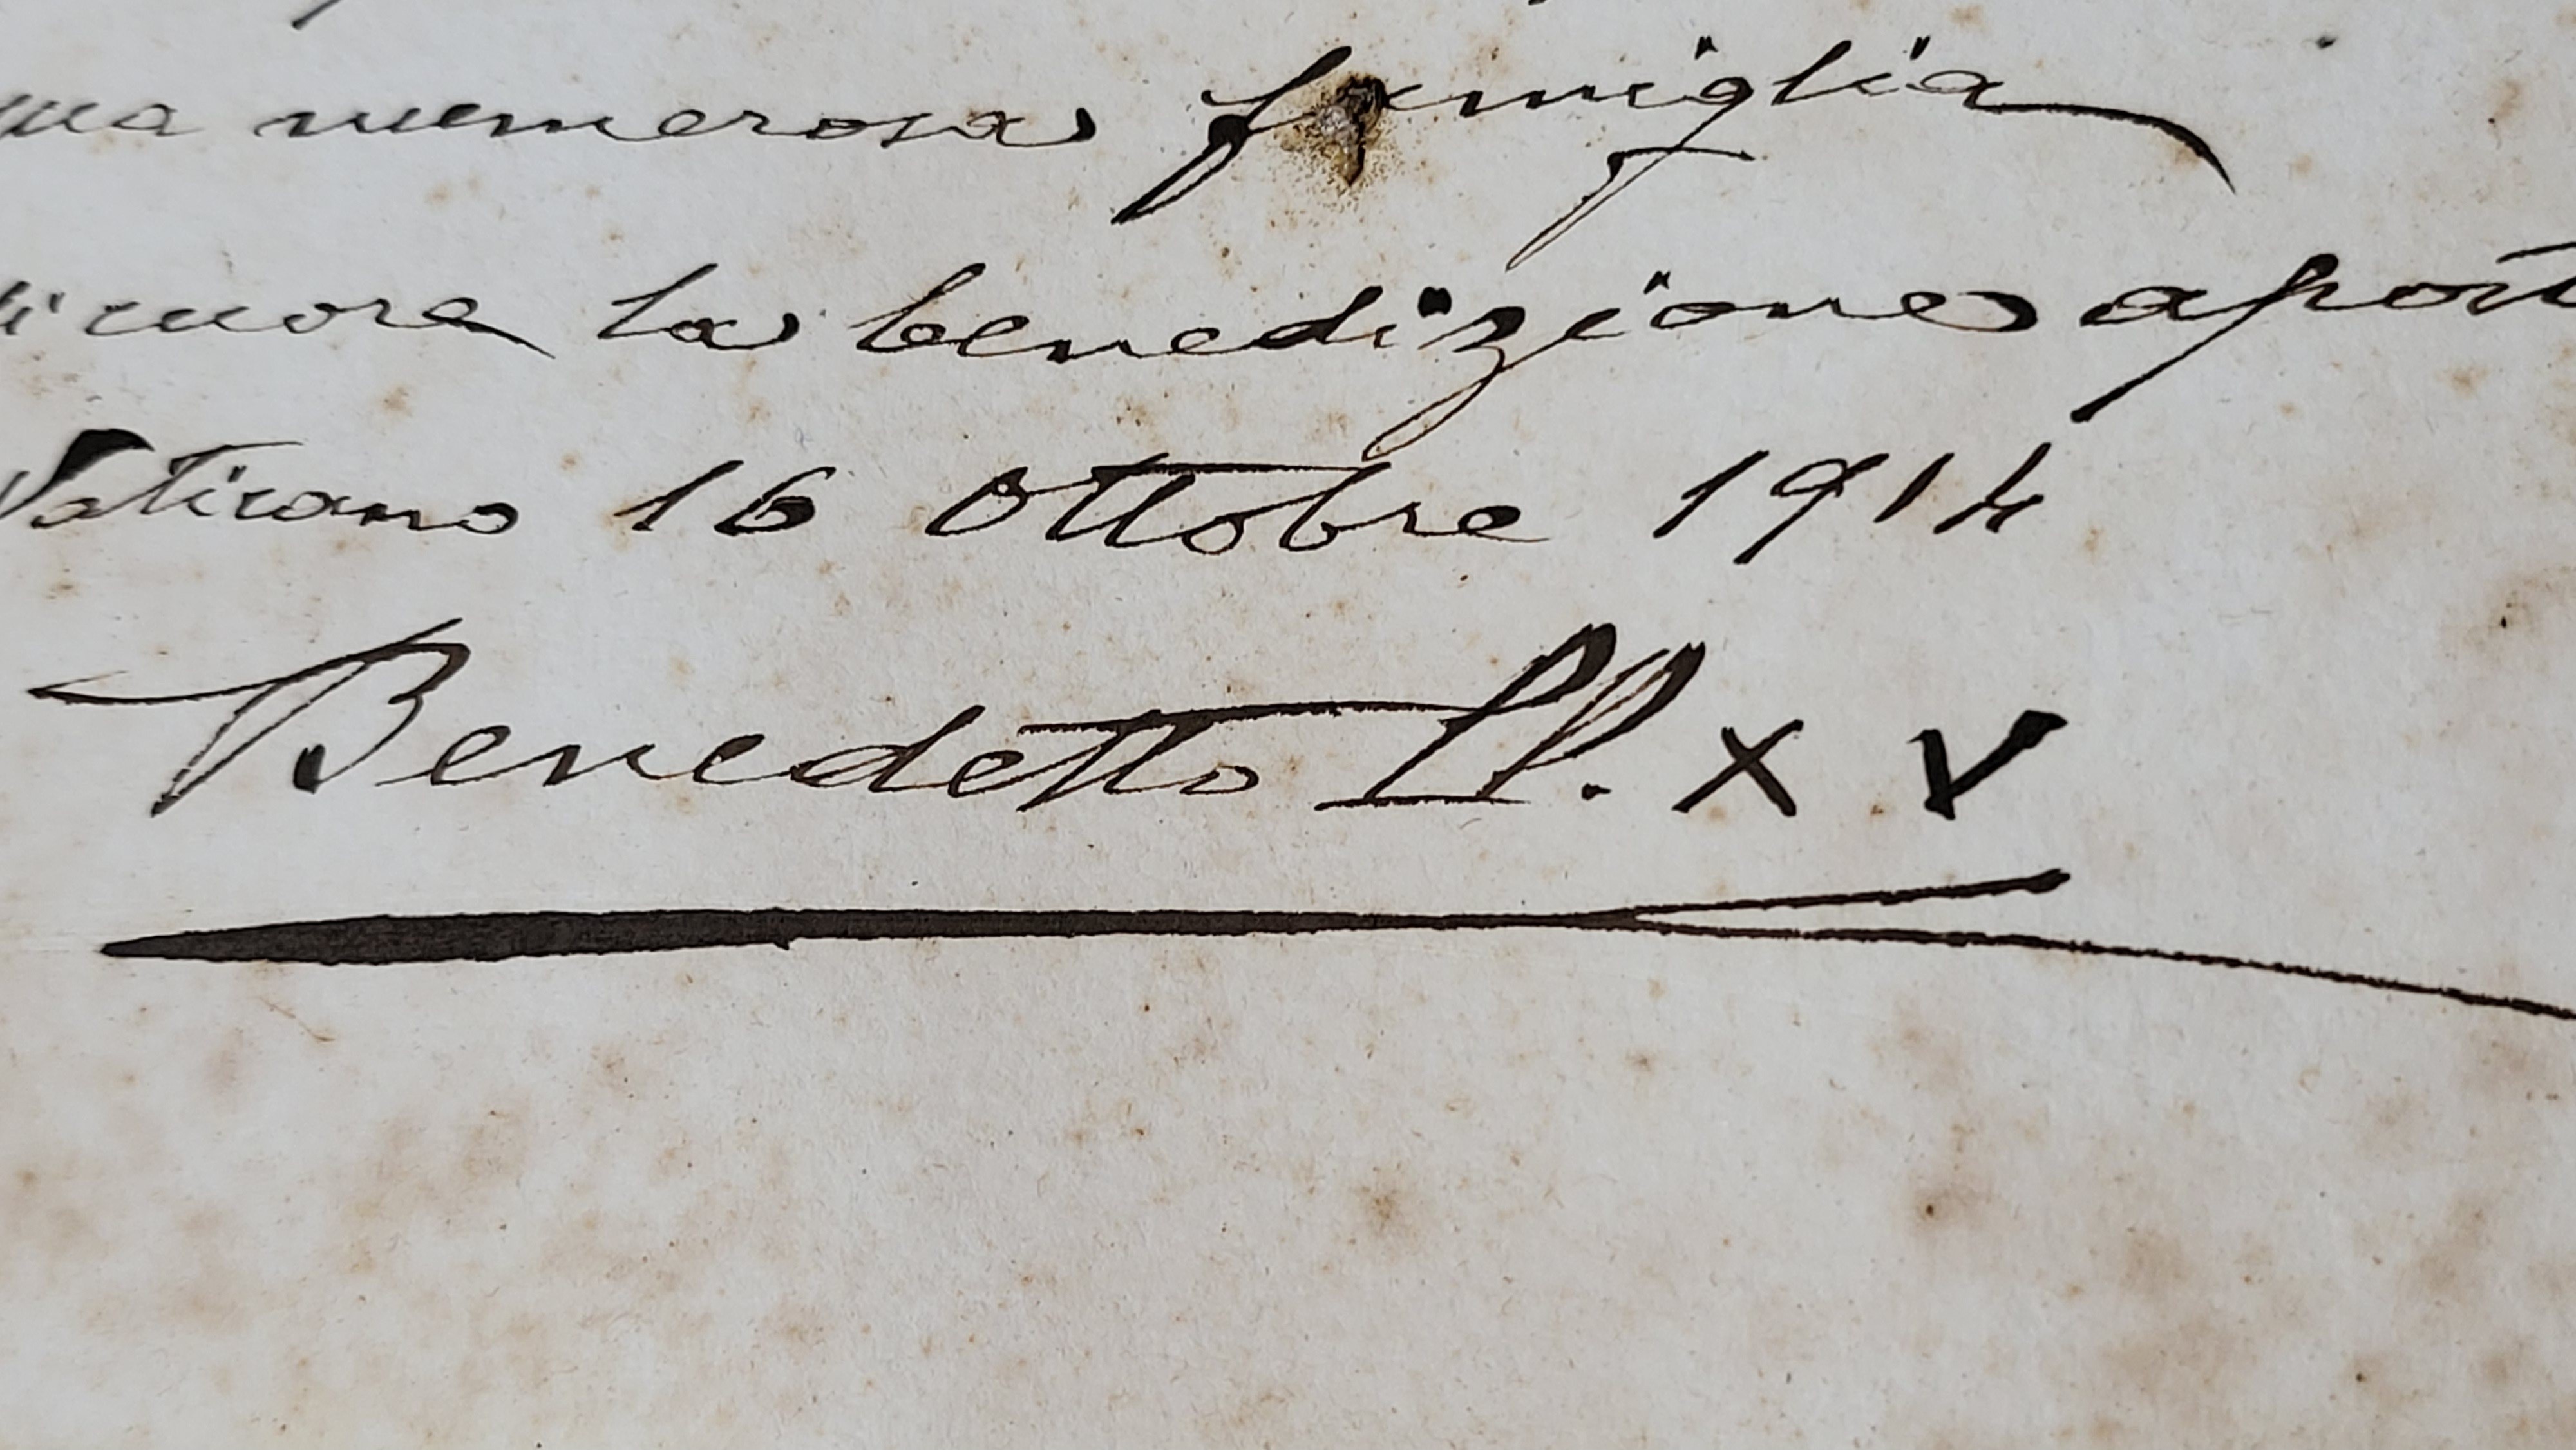 sua numerosa famiglia
di cuore la benedizione apost
Vaticano 16 Ottobre 1914
Benedetto PP. XV